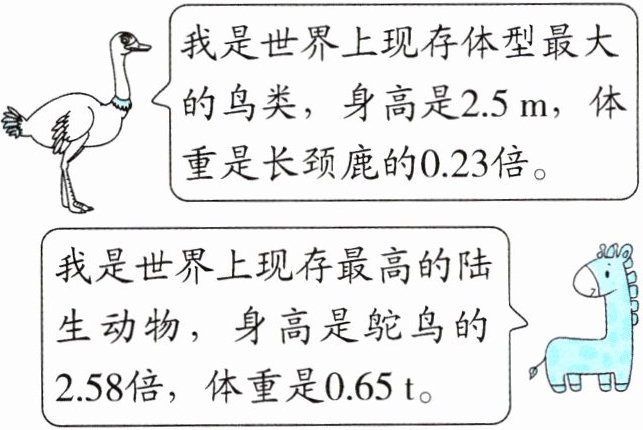 我是世界上现存体型最大
的鸟类，身高是2.5 m，体
重是长颈鹿的0.23倍。
我是世界上现存最高的陆
生动物，身高是鸵鸟的
2.58倍，体重是0.65 t。